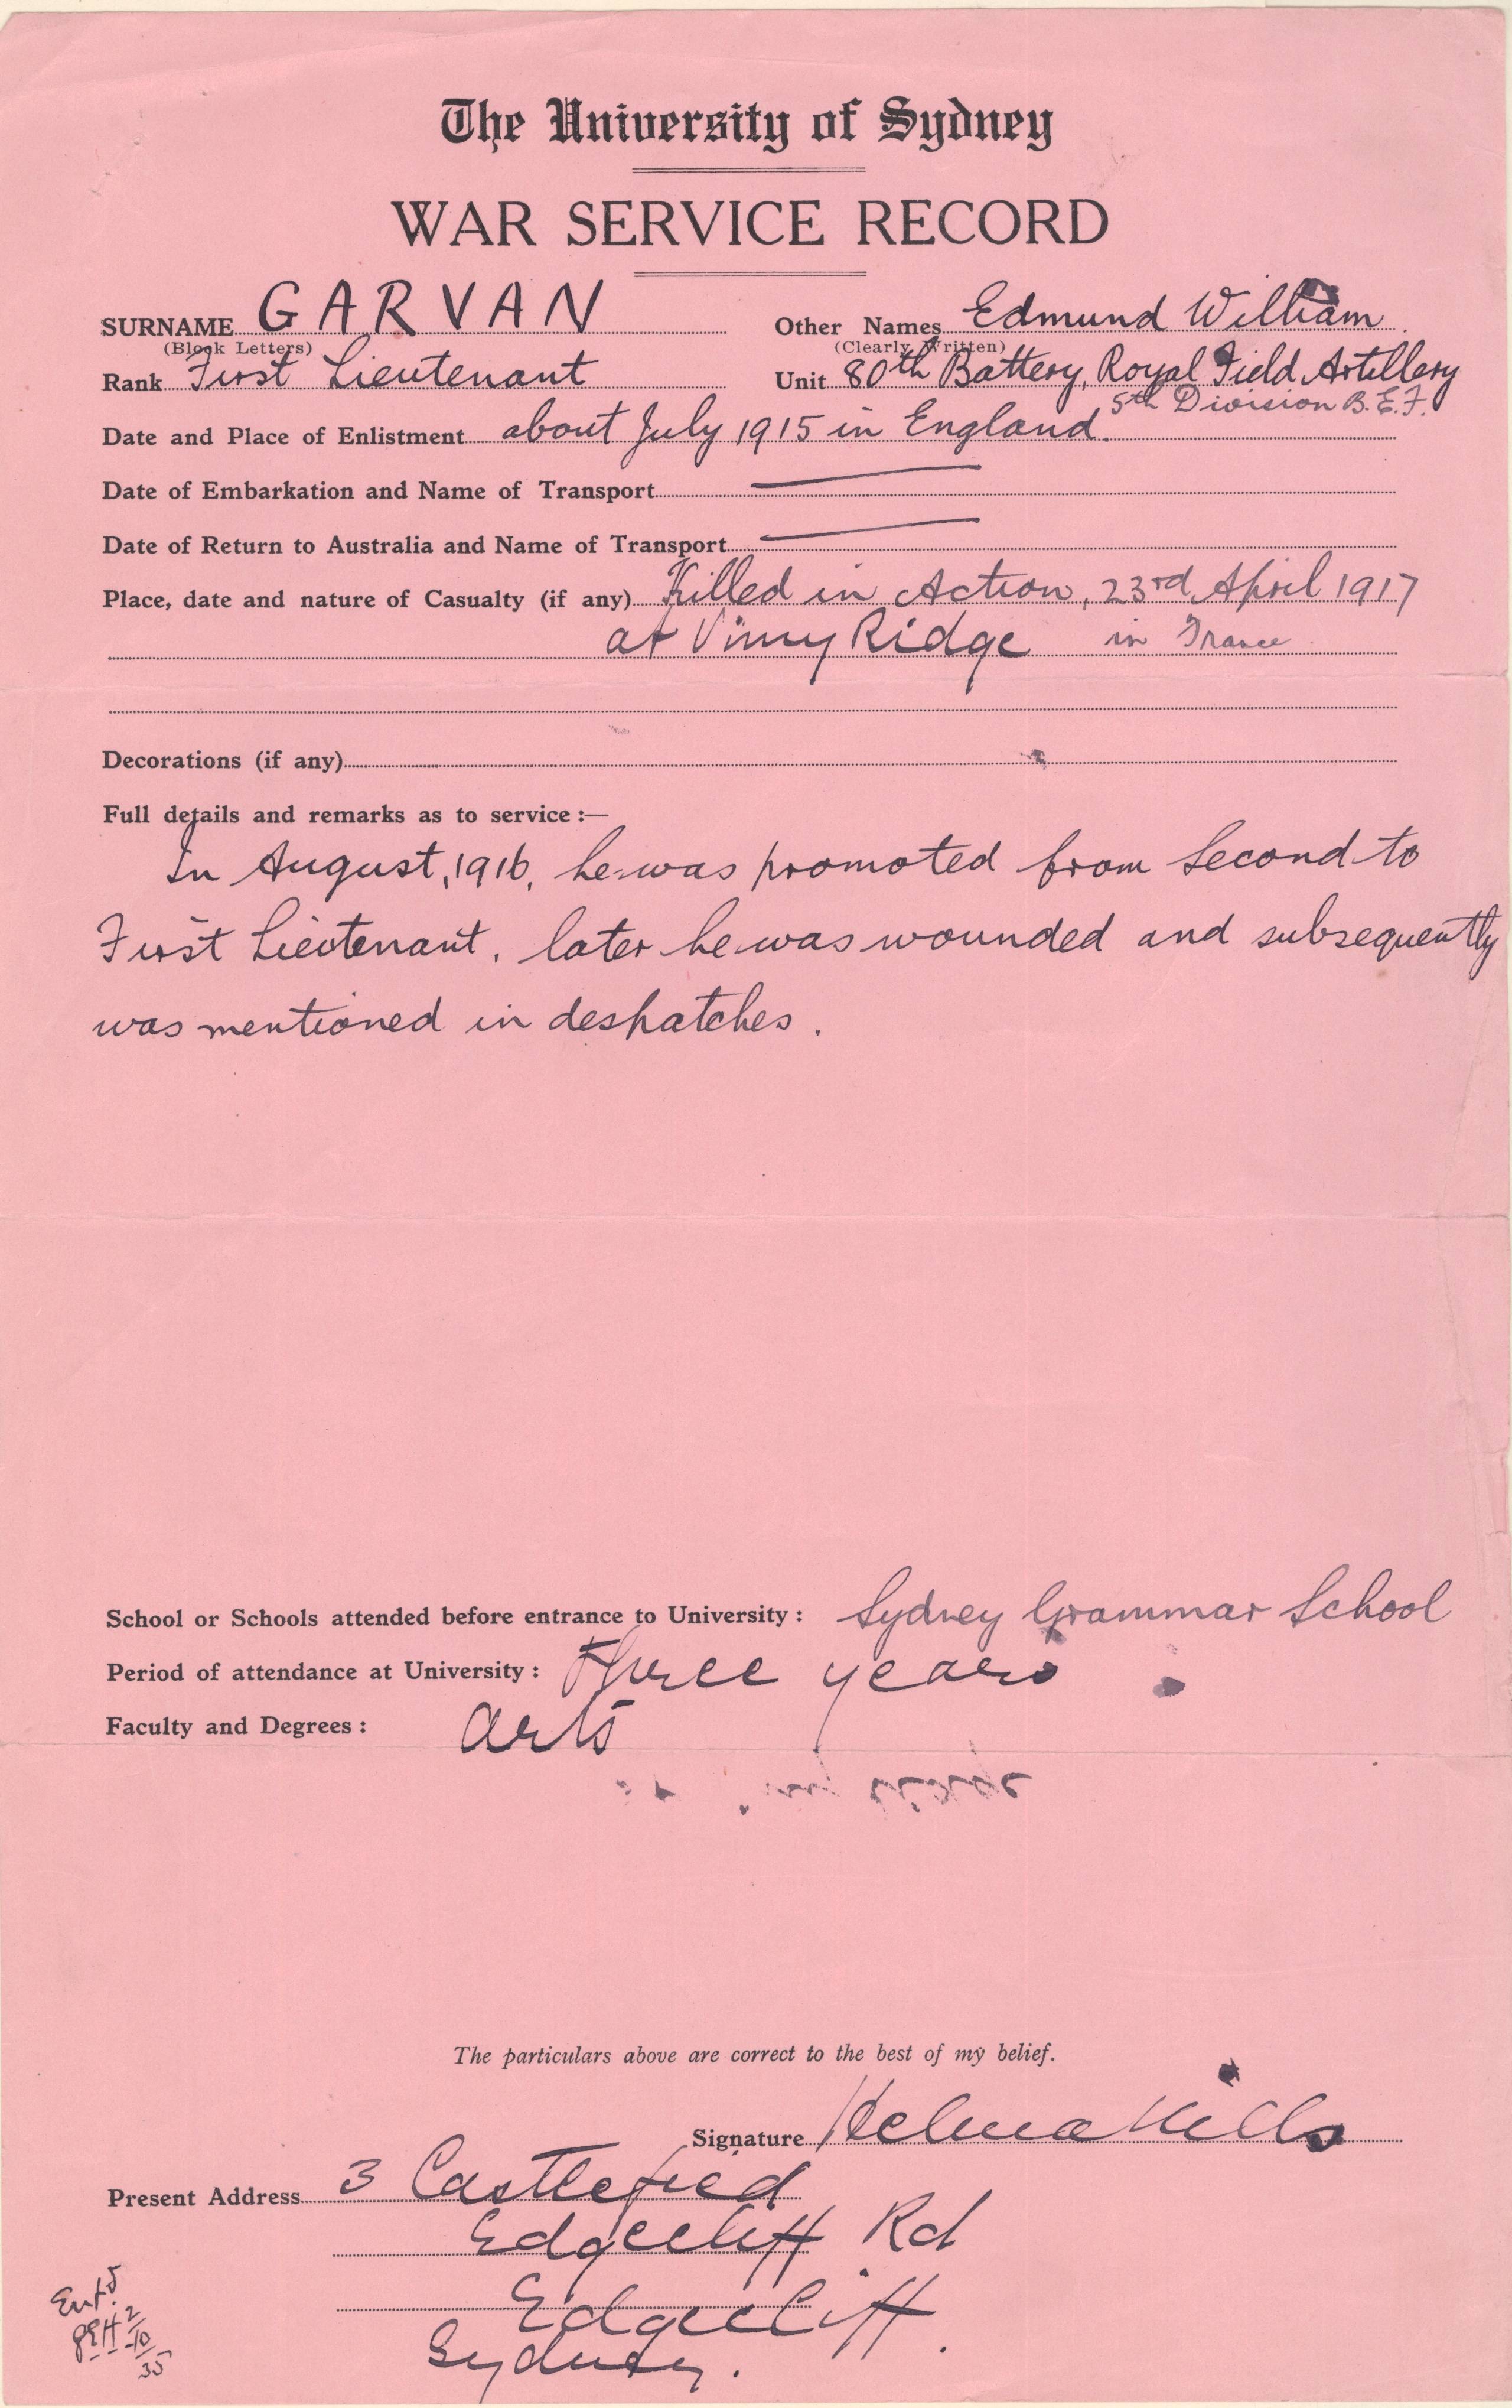 The University of Sydney
WAR SERVICE RECORD
SURNAME GARVAN Other Names Edmund William
(Block Letters) (Clearly Written)
Rank First Lieutenant Unit 80th Battery, Royal Field Artillery
5th Division B.E.F.
Date and Place of Enlistment about July 1915 in England.
Date of Embarkation and Name of Transport
Date of Return to Australia and Name of Transport
Place, date and nature of Casualty (if any) Killed in Action, 23rd April 1917
at Vimy Ridge in France
Decorations (if any)
Full details and remarks as to service :—
In August, 1916, he was promoted from Second to
First Lieutenant, later he was wounded and subsequently
was mentioned in despatches.
School or Schools attended before entrance to University : Sydney Grammar School
Period of attendance at University : Three years
Faculty and Degrees : Arts
The particulars above are correct to the best of my belief.
Signature Helma Mills
Present Address 3 Castlefield
Edgecliff Rd
Edgecliff
Sydney.
Entd
2
10
35